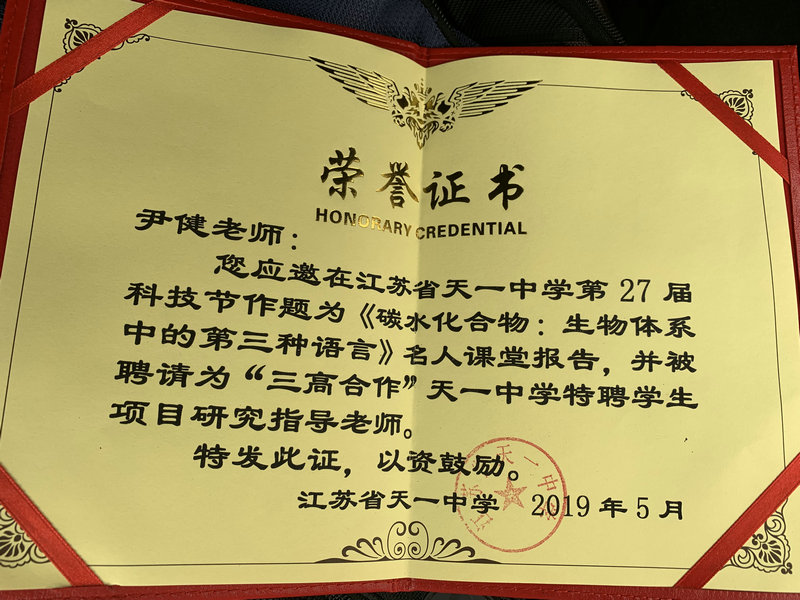 荣誉证书
HONORARY CREDENTIAL
尹健老师：
您应邀在江苏省天一中学第27届
科技节作题为《碳水化合物：生物体系
中的第三种语言》名人课堂报告，并被
聘请为“三高合作”天一中学特聘学生
项目研究指导老师。
特发此证，以资鼓励。
江苏省天一中学 2019年5月